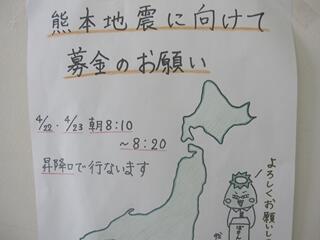 熊本地震に向けて
募金のお願い
4/22・4/23 朝8:10
～8:20
昇降口で行ないます
よろしくお願いし